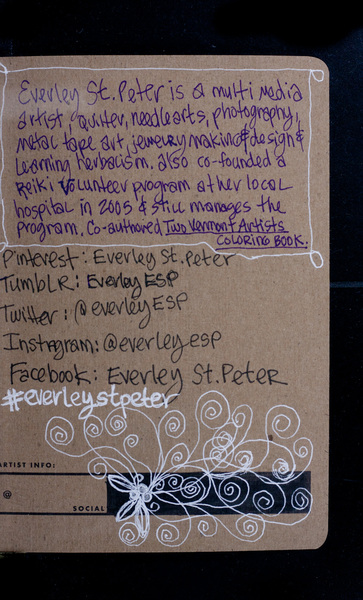 Everley St. Peter is a multi media
artist, quilter, needle arts, photography,
metal tape art, jewelry making & design &
learning herbalism. also co-founded a
Reiki Volunteer program at her local
hospital in 2005 & still manages the
program. Co-authored Two Vermont Artists
COLORING BOOK.
Pinterest: Everley St. Peter
TumbLR: Everley ESP
Twitter: @everleyESP
Instagram: @everleyesp
Facebook: Everley St. Peter
#everleystpeter
ARTIST INFO:
@
SOCIAL